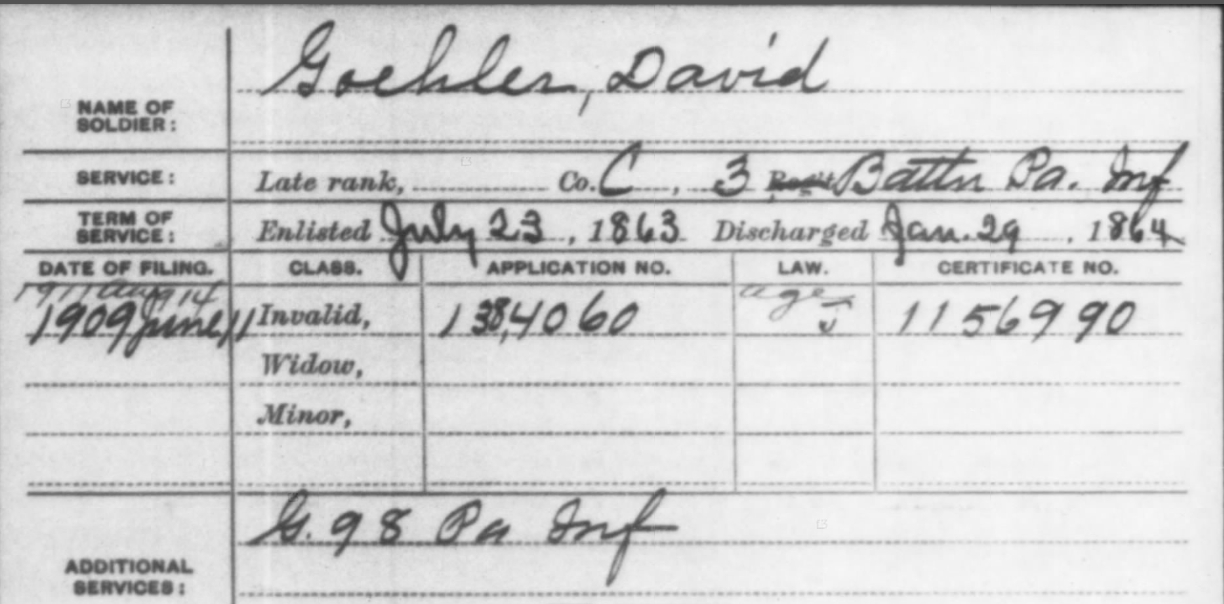 Goehler, David
NAME OF
SOLDIER:
SERVICE: Late rank, Co. C, 3 Reg't Battn Pa. Inf
TERM OF
SERVICE: Enlisted July 23, 1863 Discharged Jan. 29, 1864
DATE OF FILING. CLASS. APPLICATION NO. LAW. CERTIFICATE NO.
1911 Aug 14 age
1909 June 11 Invalid, 1384060 J 1156990
Widow,
Minor,
G. 98 Pa Inf
ADDITIONAL
SERVICES: